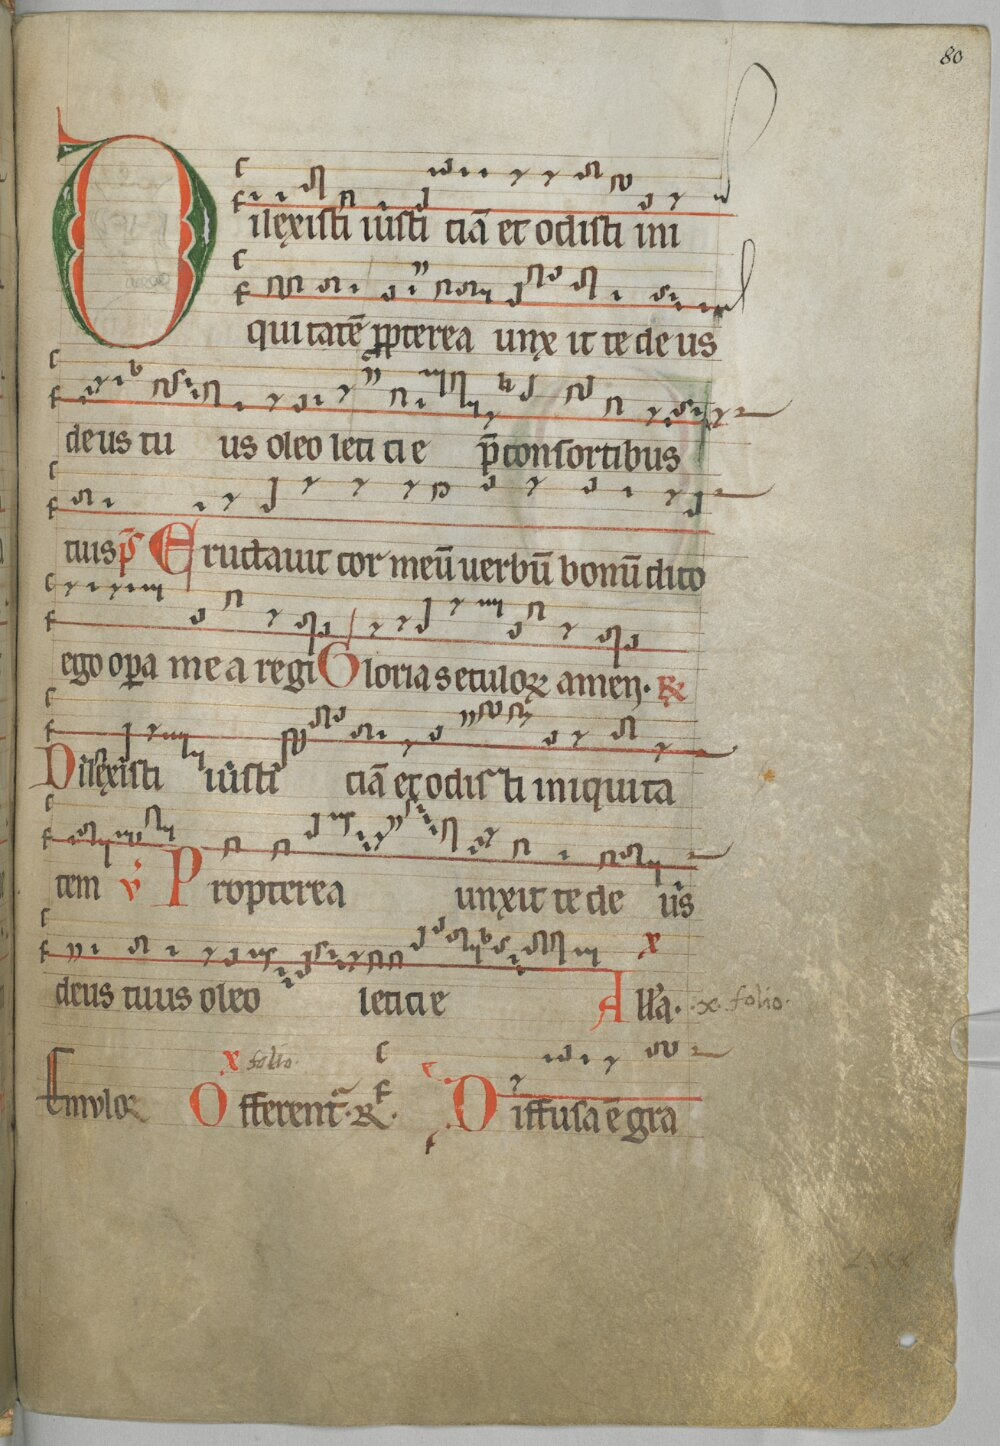 80
Dilexisti iusti ciā et odisti ini
quitatē ꝓpterea unx it te de us
deus tu us oleo leti ci e p̄ consortibus
tuis p̄s Eructauit cor meū uerbū bonū dico
ego oꝑa me a regi Gloria seculoꝝ amen. ℞
Dilexisti iusti ciā et odis ti iniquita
tem v̄ Propterea unxit te de us
deus tuus oleo leticie x
All'a. .x. folio.
x folio.
Offerent̄. R. Diffusa ē gra
lxxx